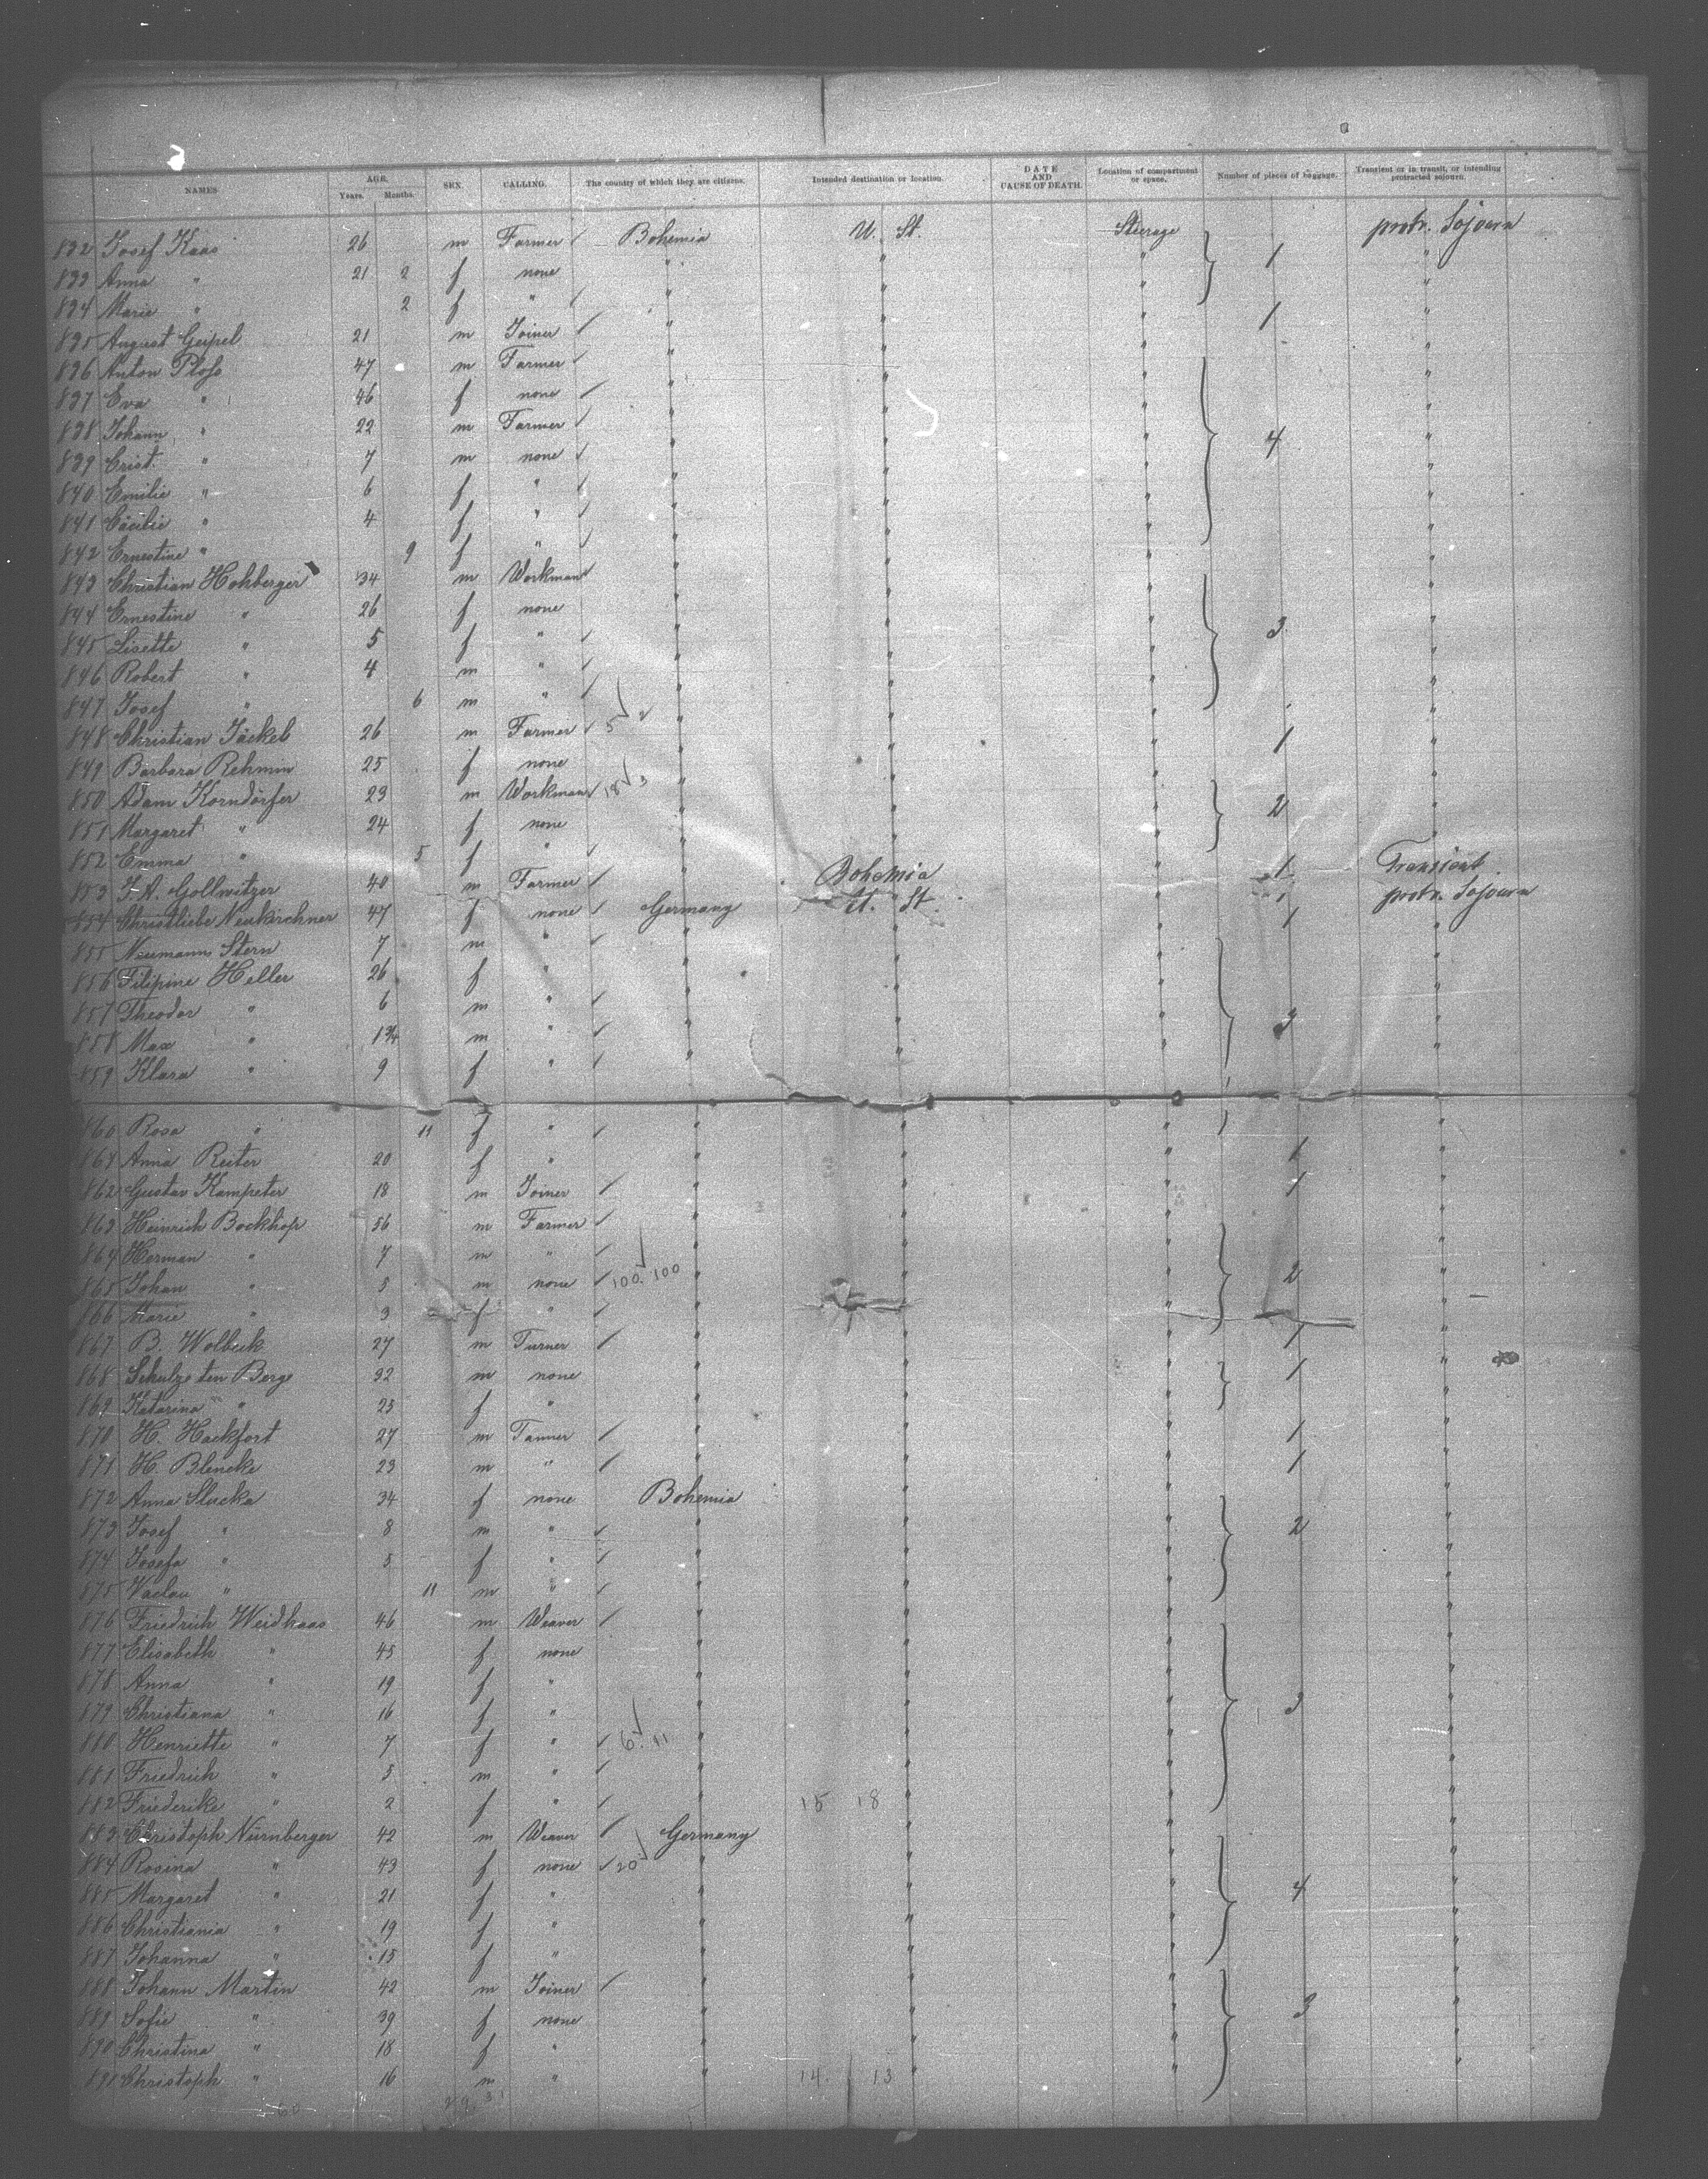 NAMES AGE. Years. Months. SEX. CALLING. The country of which they are citizens. Intended destination or location. DATE AND CAUSE OF DEATH. Location of compartment or space. Number of pieces of baggage. Transient or in transit, or intending protracted sojourn.
832 Josef Kaas 26 m Farmer Bohemia U. St. Steerage 1 protr. Sojourn
833 Anna " 21 2 f none " " " "
834 Marie " 2 f " " " " "
835 August Geipel 21 m Joiner " " " 1 "
836 Anton Ploss 47 m Farmer " " " "
837 Eva " 46 f none " " " "
838 Johann " 22 m Farmer " " " 4 "
839 Crist. " 7 m none " " " "
840 Emilie " 6 f " " " " "
841 Cäcilie " 4 f " " " " "
842 Ernestine " 9 f " " " " "
843 Christian Hohberger 34 m Workman " " " "
844 Ernestine " 26 f none " " " "
845 Lisette " 5 f " " " " 3 "
846 Robert " 4 m " " " " "
847 Josef " 6 m " " " " "
848 Christian Jäckel 26 m Farmer 5 2 " " " 1 "
849 Barbara Rehmin 25 f none " " " "
850 Adam Korndörfer 23 m Workman 18 3 " " " 2 "
851 Margaret " 24 f none " " " "
852 Emma " 5 f " " " " "
853 J. A. Gollwitzer 40 m Farmer " Bohemia " 1 Transient
854 Christliebe Neukirchner 47 f none Germany U. St. " 1 protr. Sojourn
855 Neumann Stern 7 m " " " " "
856 Filipine Heller 26 f " " " " "
857 Theodor " 6 m " " " " "
858 Max " 1 3/4 m " " " " 3 "
859 Klara " 9 f " " " " "
860 Rosa " 11 f " " " " "
861 Anna Reiter 20 f " " " " 1 "
862 Gustav Kampeter 18 m Joiner " " " 1 "
863 Heinrich Bockhop 56 m Farmer " " " "
864 Herman " 7 m " " " " "
865 Johan " 5 m none 100. 100 " " " 2 "
866 Marie " 3 f " " " " "
867 B. Wolbeck 27 m Turner " " " 1 "
868 Schulze ten Berge 32 m none " " " 1 "
869 Katarina " " 25 f " " " " "
870 H. Hackfort 27 m Tanner " " " 1 "
871 H. Blencke 23 m " " " " 1 "
872 Anna Slucka 34 f none Bohemia " " "
873 Josef " 8 m " " " " 2 "
874 Josefa " 5 f " " " " "
875 Vaclav " 11 m " " " " "
876 Friedrich Weidhaas 46 m Weaver " " " "
877 Elisabeth " 45 f none " " " "
878 Anna " 19 f " " " " "
879 Christiana " 16 f " " " " 3 "
880 Henriette " 7 f " 6. 11 " " " "
881 Friedrich " 5 m " " " " "
882 Friederike " 2 f " " 15 18 " " "
883 Christoph Nürnberger 42 m Weaver Germany " " "
884 Rosina " 43 f none 20 " " " "
885 Margaret " 21 f " " " " 4 "
886 Christiania " 19 f " " " " "
887 Johanna " 15 f " " " " "
888 Johann Martin 42 m Joiner " " " "
889 Sofie " 39 f none " " " 3 "
890 Christina " 18 f " " " " "
891 Christoph " 16 m " " 14. 13 " " "